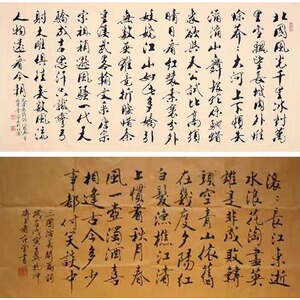 北國風光千里冰封萬
里雪飄望長城内外惟
餘莽莽大河上下頓失
滔滔山舞銀蛇原馳蠟
象欲與天公試比高須
晴日看紅裝素裹分外
妖嬈江山如此多嬌引
無數英雄競折腰惜秦
皇漢武略輸文采唐宗
宋祖稍遜風騷一代天
驕成吉思汗只識彎弓
射大雕俱往矣數風流
人物還看今朝
滾滾長江東逝
水浪花淘盡英
雄是非成敗轉
頭空青山依舊
在幾度夕陽紅
白髮漁樵江渚
上慣看秋月春
風一壺濁酒喜
相逢古今多少
事都付笑談中
三國演義開篇詞